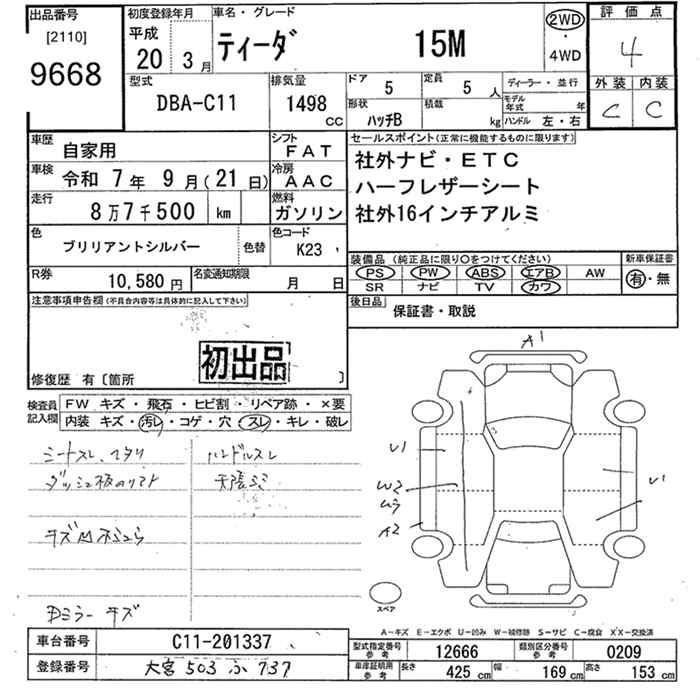 出品番号 初度登録年月 車名・グレード 評価点
[2110] 平成 ティーダ 15M 2WD ・ 4WD 4
9668 20 3月
型式 排気量 ドア 5 定員 5人 ディーラー・並行 外装 内装
DBA-C11 1498cc 形状 ハッチB 積載 kg モデル年式 年 ハンドル 左・右 C C
車歴 自家用 シフト FAT セールスポイント(正常に機能するものに限ります)
車検 令和 7年 9月(21日) 冷房 AAC 社外ナビ・ETC
走行 8万7千500 km 燃料 ガソリン ハーフレザーシート
社外16インチアルミ
色 ブリリアントシルバー 色替 色コード K23
装備品(純正品に限り○をつけてください) 新車保証書
R券 10,580円 名変通知期限 月 日 PS PW ABS エアB AW 有・無
SR ナビ TV カワ
注意事項申告欄(不具合内容等は具体的に記入して下さい) 後日品 保証書・取説
初出品
修復歴 有〔箇所 〕
検査員記入欄 FW キズ・飛石・ヒビ割・リペア跡・×要
内装 キズ・汚レ・コゲ・穴・スレ・キレ・破レ
シートスレ、ヘタリ ハンドルスレ
ダッシュ板のリフト 天張シミ
キズ凹
Dミラーキズ
A1
U1
W2
W3
A2
U1
スペア
A-キズ E-エクボ U-凹み W-補修跡 S-サビ C-腐食 X'X-交換済
車台番号 C11-201337 型式指定番号 参考 12666 類別区分番号 参考 0209
登録番号 大宮 503 ふ 737 車庫証明用 参考 長さ 425cm 幅 169cm 高さ 153cm